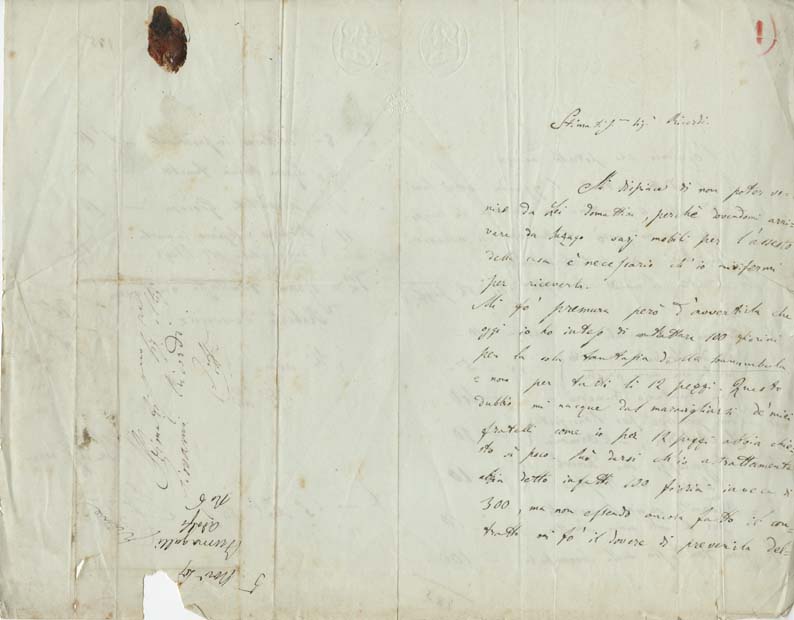 Stimatiss.mo Sig.r Ricordi.
Mi dispiace di non poter ve-
nire da Lei domattina, perchè dovendomi arri-
vare da varj mobili per l'assesto
della casa è necessario ch'io mi fermi
per riceverli.
Mi fo' premura però d'avvertirla che
oggi io ho inteso di trattare 100 fiorini
per la sola fantasia della Sonnambula
e non per tutti li 12 pezzi. Questo
dubbio mi nacque dal maravigliarsi de' miei
fratelli come io per 12 pezzi abbia chie-
sto sì poco. Può darsi ch'io
abbia detto infatti 100 fiorini invece di
300, ma non essendo ancora fatto il con-
tratto mi fo' il dovere di prevenirla del-
Giovanni Ricordi
Fumagalli